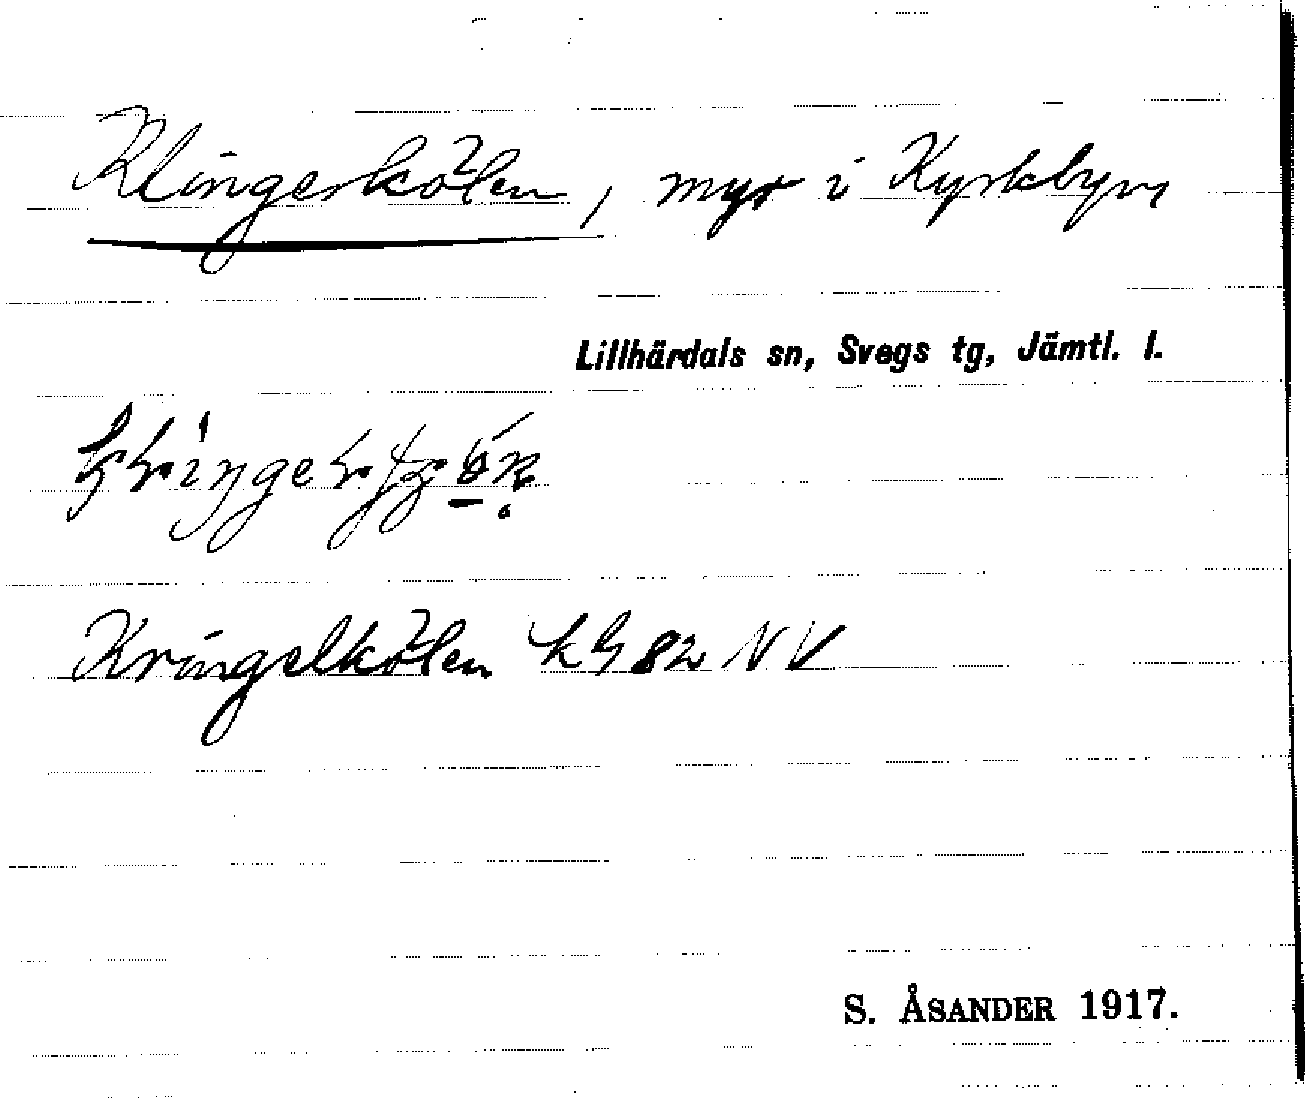 Klingerkölen, myr i Kyrkbyn
Lillhärdals sn, Svegs tg, Jämtl. l.
Kringelkölen kG 82 NV
S. ÅSANDER 1917.